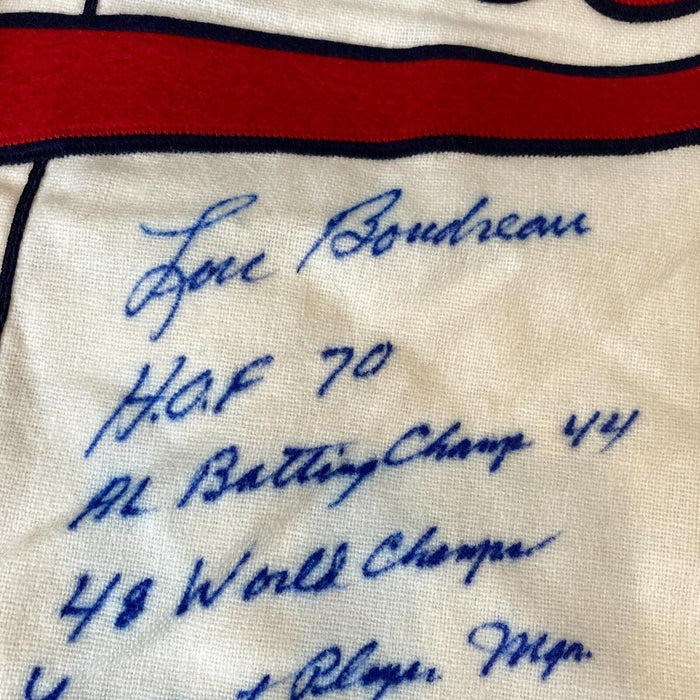 Lou Boudreau
H.O.F 70
AL Batting Champ 44
48 World Champs
Player Mgr.